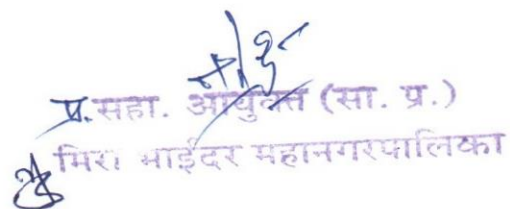 प्र. सहा. आयुक्त (सा. प्र.)
मिरा भाईंदर महानगरपालिका